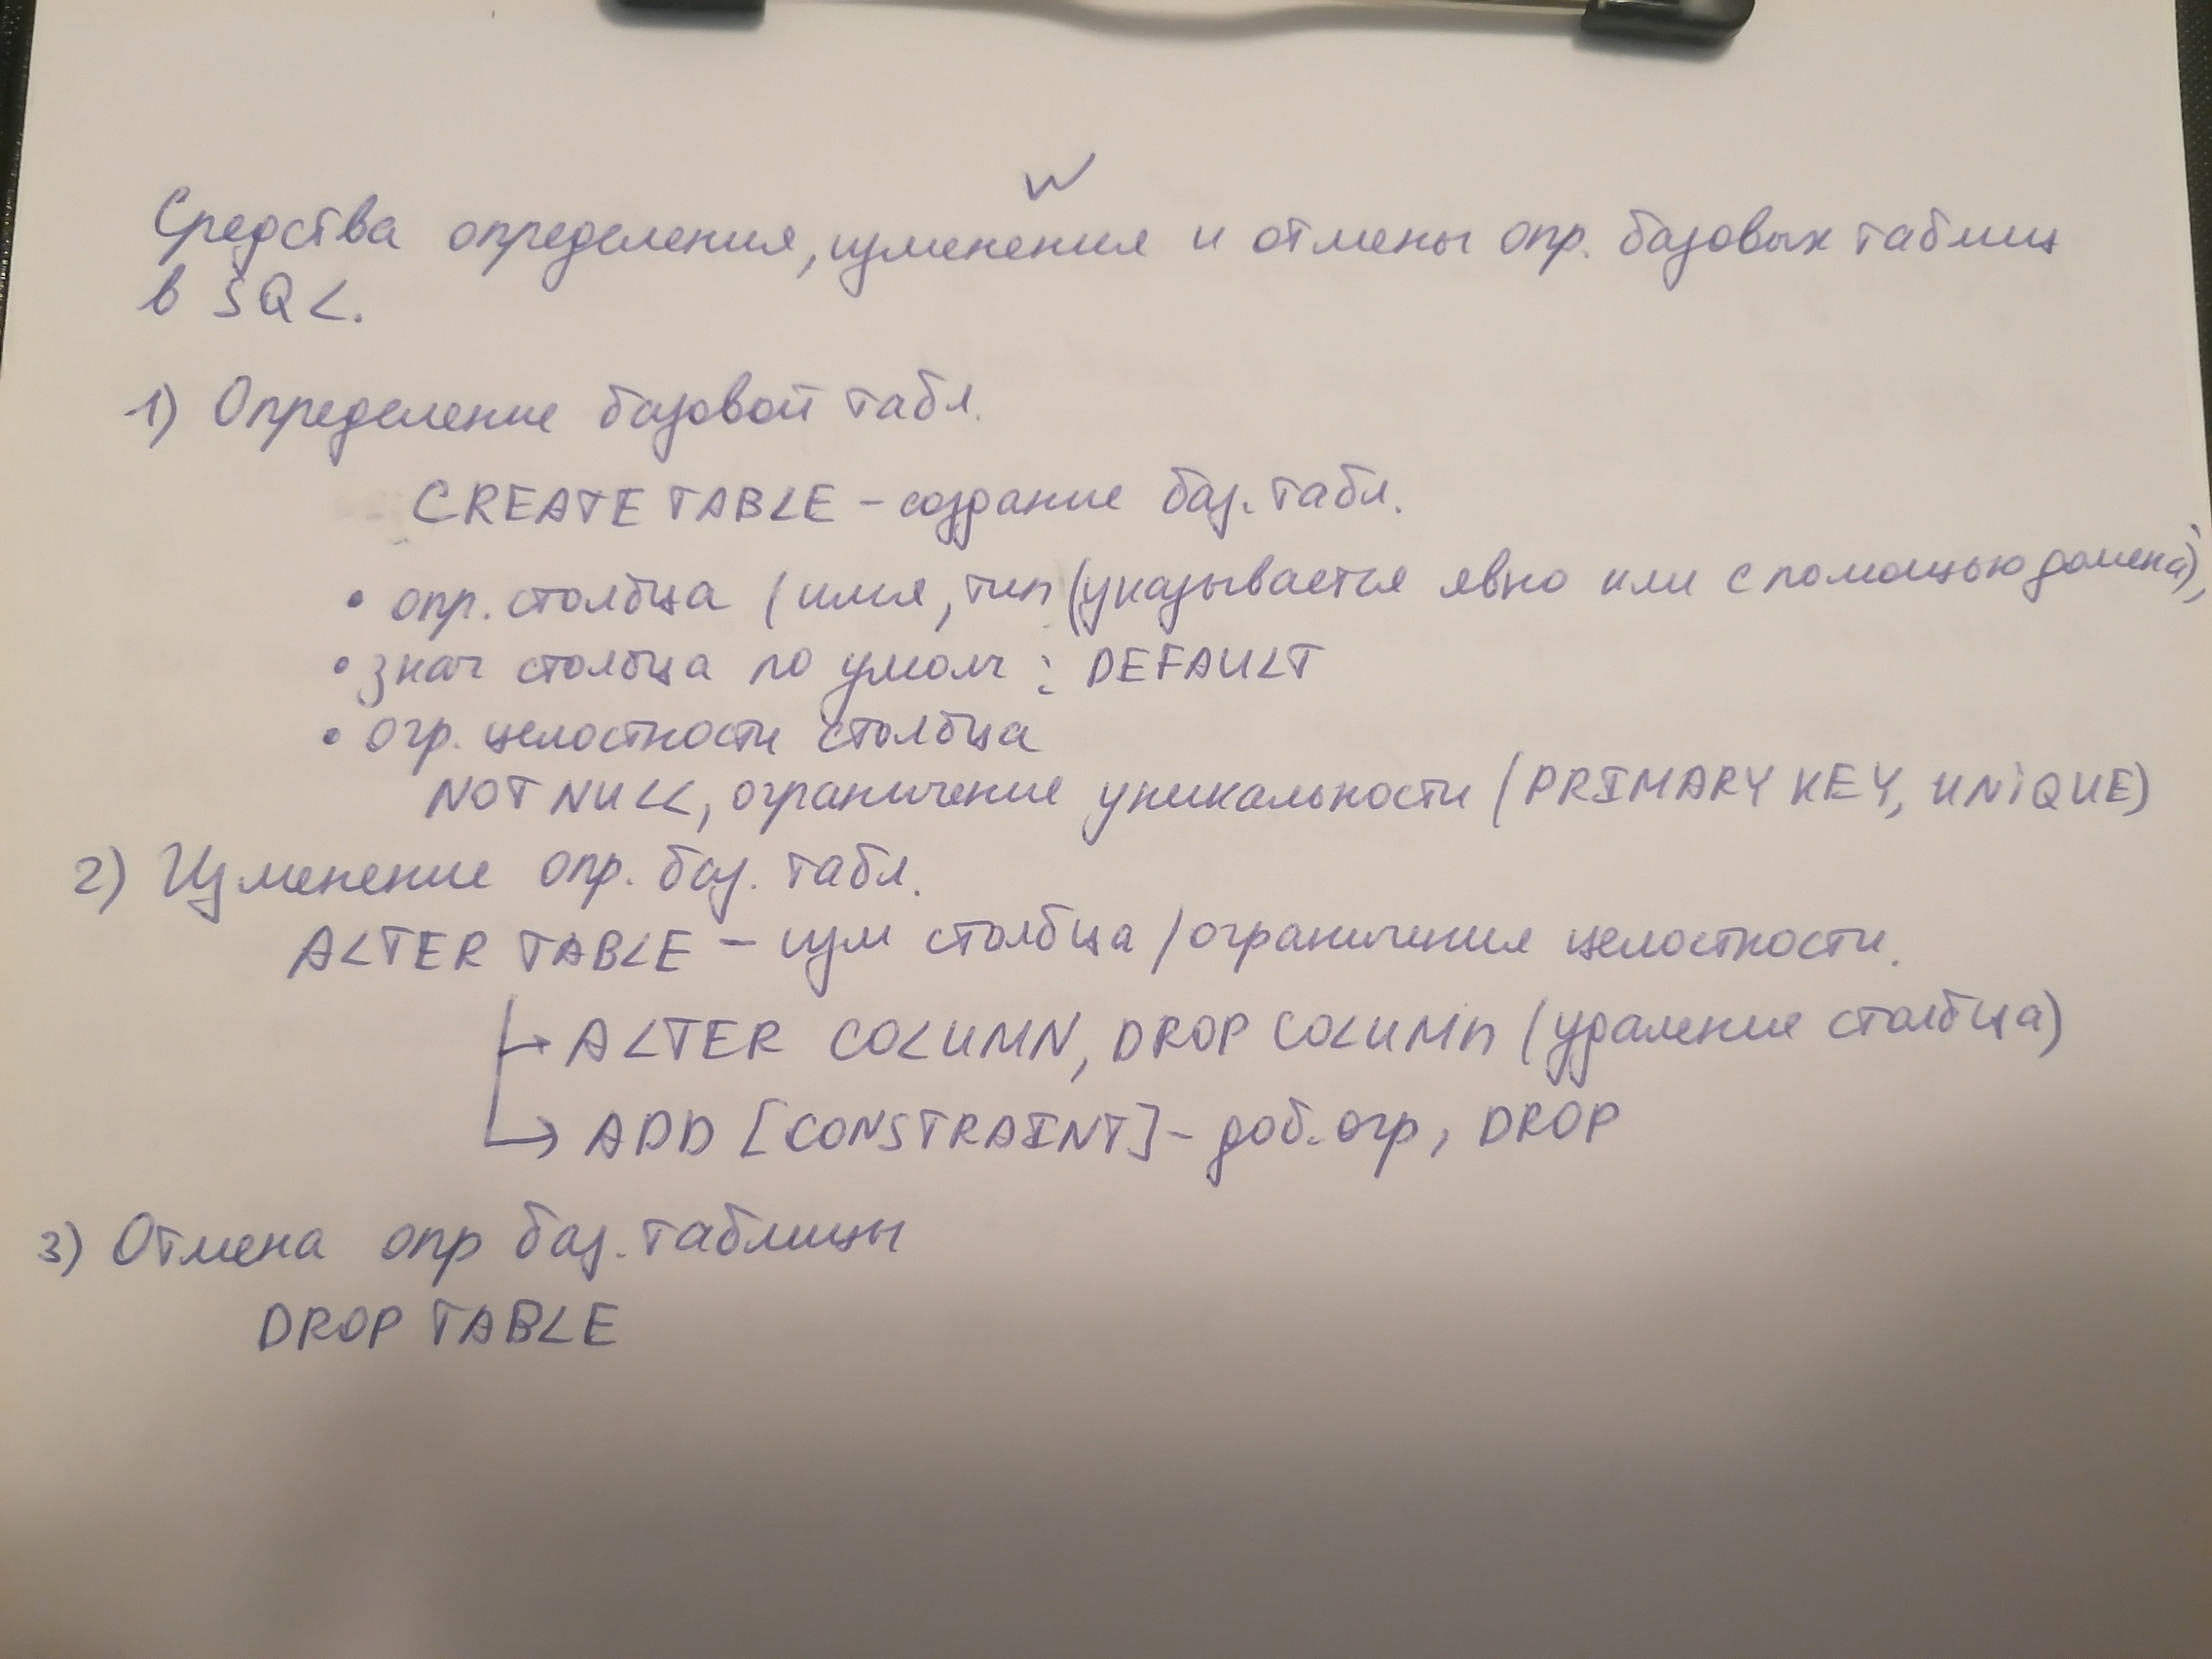 Средства определения, изменения и отмены опр. базовых таблиц
в SQL.
1) Определение базовой табл.
CREATE TABLE - создание баз. табл.
• опр. столбца (имя, тип (указывается явно или с помощью домена),
• знач столбца по умолч : DEFAULT
• огр. целостности столбца
NOT NULL, ограничение уникальности (PRIMARY KEY, UNIQUE)
2) Изменение опр. баз. табл.
ALTER TABLE - изм столбца / ограничения целостности.
→ ALTER COLUMN, DROP COLUMn (удаление столбца)
→ ADD [CONSTRAINT] - доб. огр, DROP
3) Отмена опр баз. таблицы
DROP TABLE